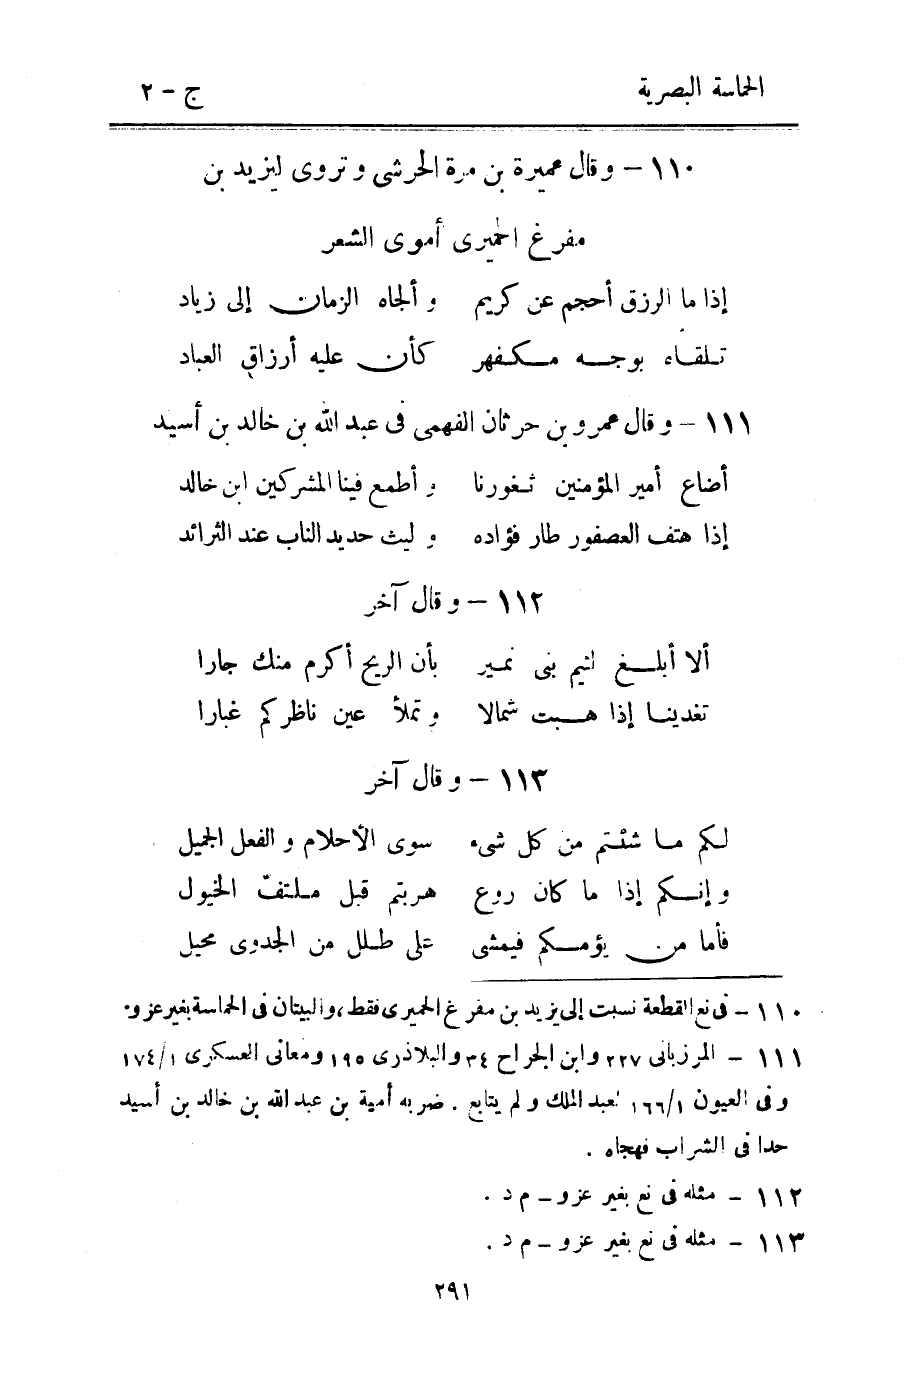 الحماسة البصرية ج – ٢
١١٠ – و قال عميرة بن مرة الحرشى و تروى ليزيد بن
مفرغ الحميرى أموى الشعر
إذا ما الرزق أحجم عن كريم و ألجاه الزمان إلى زياد
تلقاه بوجه مكفهر كأن عليه أرزاق العباد
١١١ – و قال عمرو بن حرثان الفهمى فى عبد الله بن خالد بن أسيد
أضاع أمير المؤمنين ثغورنا و أطمع فينا المشركين ابن خالد
إذا هتف العصفور طار فؤاده و ليث حديد الناب عند الثرائد
١١٢ – و قال آخر
ألا أبلغ لئيم بنى نمير بأن الريح أكرم منك جارا
تغدينا إذا هبت شمالا و تملأ عين ناظركم غبارا
١١٣ – و قال آخر
لكم ما شئتم من كل شىء سوى الأحلام و الفعل الجميل
و إنكم إذا ما كان روع هربتم قبل ملتفّ الخيول
فأما من يؤمكم فيمشى على طلل من الجدوى محيل
١١٠ – فى نع القطعة نسبت إلى يزيد بن مفرغ الحميرى فقط، والبيتان فى الحماسة بغير عزو.
١١١ – المرزبانى ٢٢٧ و ابن الجراح ٣٤ و البلاذرى ١٩٥ و معانى العسكرى ١/ ١٧٤
و فى العيون ١/ ١٦٦ لعبد الملك و لم يتابع . ضربه أمية بن عبد الله بن خالد بن أسيد
حدا فى الشراب فهجاه .
١١٢ – مثله فى نع بغير عزو – م د .
١١٣ – مثله فى نع بغير عزو – م د .
٢٩١